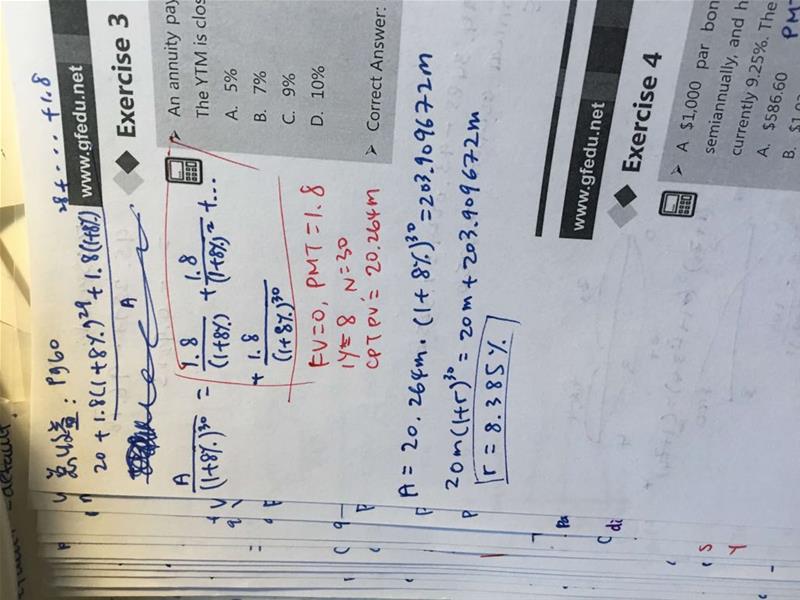 总收益: P960
20 + 1.8(1+8%)^29 + 1.8(1+8%)^28 + ... +1.8
A
A/(1+8%)^30 = 1.8/(1+8%) + 1.8/(1+8%)^2 + ...
+ 1.8/(1+8%)^30
FV=0, PMT=1.8
IY=8 N=30
CPT PV= 20.264m
A = 20.264m · (1+8%)^30 = 203.909672m
20m(1+r)^30 = 20m + 203.909672m
r = 8.385%
www.gfedu.net
Exercise 3
➤ An annuity pay
The YTM is clos
A. 5%
B. 7%
C. 9%
D. 10%
➤ Correct Answer:
www.gfedu.net
Exercise 4
➤ A $1,000 par bon
semiannually, and h
currently 9.25%. The
A. $586.60
PMT